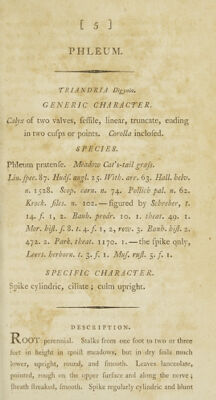 [ 5 ]
PHLEUM.
TRIANDRIA Digynia.
GENERIC CHARACTER.
Calyx of two valves, ſeſſile, linear, truncate, ending
in two cuſps or points. Corolla incloſed.
SPECIES.
Phleum pratenſe. Meadow Cat's-tail graſs.
Lin. ſpec. 87. Hudſ. angl. 25. With. arr. 63. Hall. helv.
n. 1528. Scop. carn. n. 74. Pollich pal. n. 62.
Krock. ſileſ. n. 102.—figured by Schreber, t.
14. f. 1, 2. Bauh. prodr. 10. 1. theat. 49. 1.
Mor. hiſt. ſ. 8. t. 4. f. 1, 2, row. 3. Bauh. hiſt. 2.
472. 2. Park. theat. 1170. 1.—the ſpike only,
Leers. herborn. t. 3. f. 1. Muſ. ruſt. 5. f. 1.
SPECIFIC CHARACTER.
Spike cylindric, ciliate; culm upright.
DESCRIPTION.
ROOT perennial. Stalks from one foot to two or three
feet in height in upoiſt meadows, but in dry ſoils much
lower, upright, round, and ſmooth. Leaves lanceolate,
pointed, rough on the upper ſurface and along the nerve;
ſheath ſtreaked, ſmooth. Spike regularly cylindric and blunt